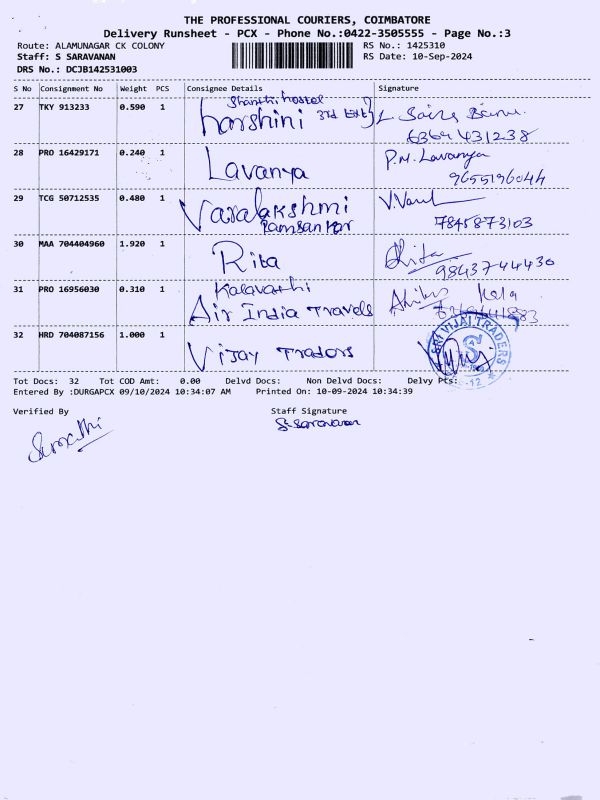 THE PROFESSIONAL COURIERS, COIMBATORE
Delivery Runsheet - PCX - Phone No.:0422-3505555 - Page No.:3
Route: ALAMUNAGAR CK COLONY RS No.: 1425310
Staff: S SARAVANAN RS Date: 10-Sep-2024
DRS No.: DCJB142531003
S No Consignment No Weight PCS Consignee Details Signature
Shanthi hostel
27 TKY 913233 0.590 1 harshini 3rd
6369431238
28 PRO 16429171 0.240 1 Lavanya P.M. Lavanya
9655196044
29 TCG 50712535 0.480 1 Varalakshmi
Ramsankar 7845873103
30 MAA 704404960 1.920 1 Rita Rita
9843744430
31 PRO 16956030 0.310 1 Kalavathi Kala
Air India Travels
32 HRD 704087156 1.000 1 Vijay Tradors SRI VIJAI TRADERS
Tot Docs: 32 Tot COD Amt: 0.00 Delvd Docs: Non Delvd Docs: Delvy Pts:
Entered By :DURGAPCX 09/10/2024 10:34:07 AM Printed On: 10-09-2024 10:34:39
Verified By Staff Signature
S. Saravanan